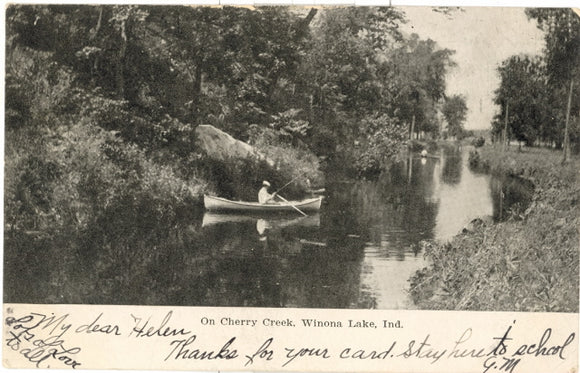 On Cherry Creek, Winona Lake, Ind.
My dear Helen
Thanks for your card. Stay here to school
G.M
Lots of Love
to all.